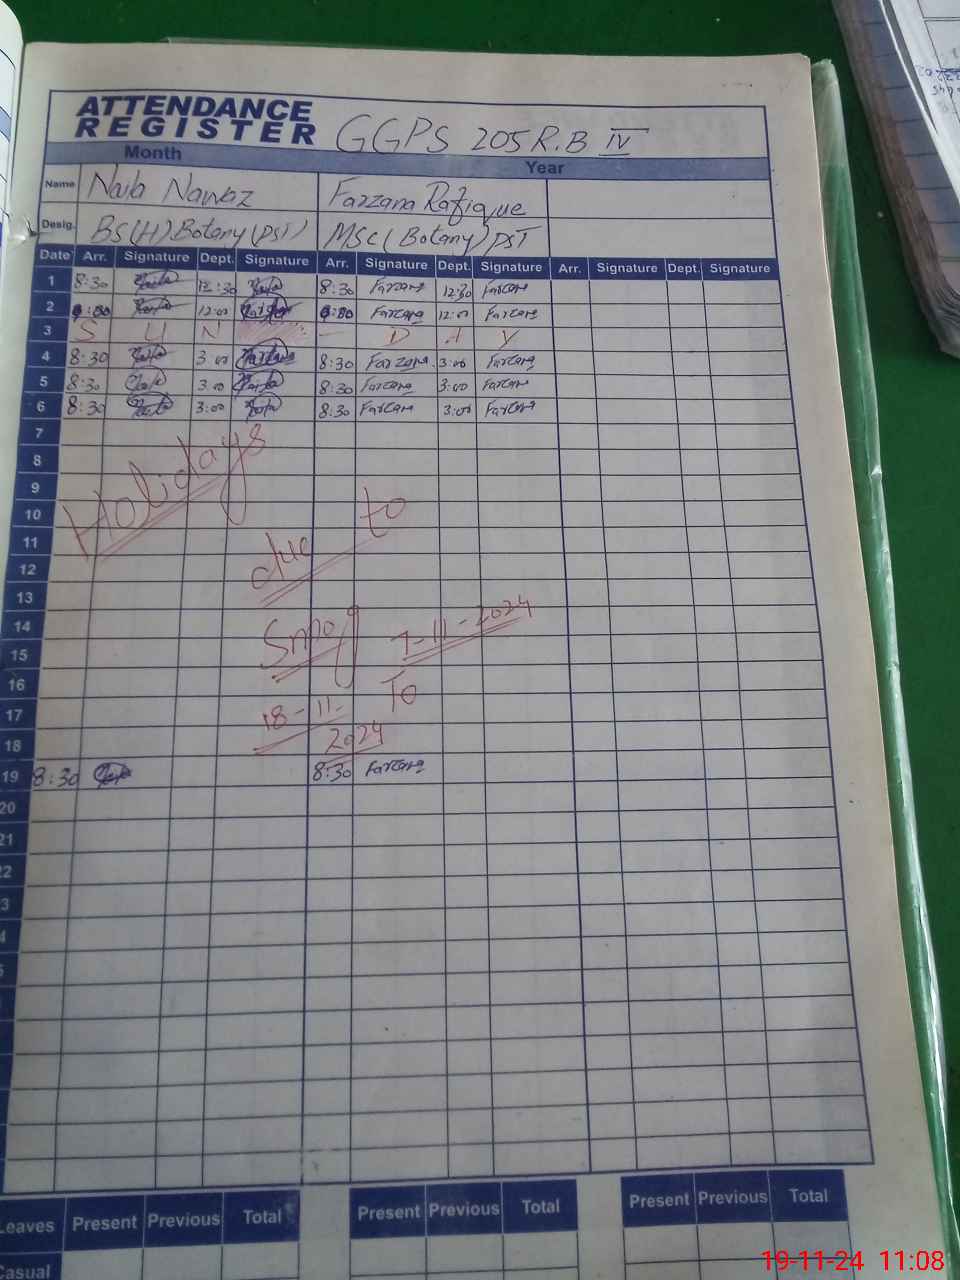 ATTENDANCE
REGISTER GGPS 205 R.B IV
Month Year
Name Naila Nawaz Farzana Rafique
Desig. BS(H) Botany (PST) MSC (Botany) PST
Date Arr. Signature Dept. Signature Arr. Signature Dept. Signature Arr. Signature Dept. Signature
1 8:30 12:30 8:30 Farzana 12:30 Farzana
2 8:00 12:00 8:00 Farzana 12:00 Farzana
3 S U N - D A Y
4 8:30 3:00 8:30 Farzana 3:00 Farzana
5 8:30 3:00 8:30 Farzana 3:00 Farzana
6 8:30 3:00 8:30 Farzana 3:00 Farzana
7
8
9
10
11
12
13
14
15
16
17
18
Holidays
due to
Smog 7-11-2024
To
18-11-
2024
19 8:30 8:30 Farzana
20
21
22
3
4
5
Leaves Present Previous Total Present Previous Total Present Previous Total
Casual
19-11-24 11:08